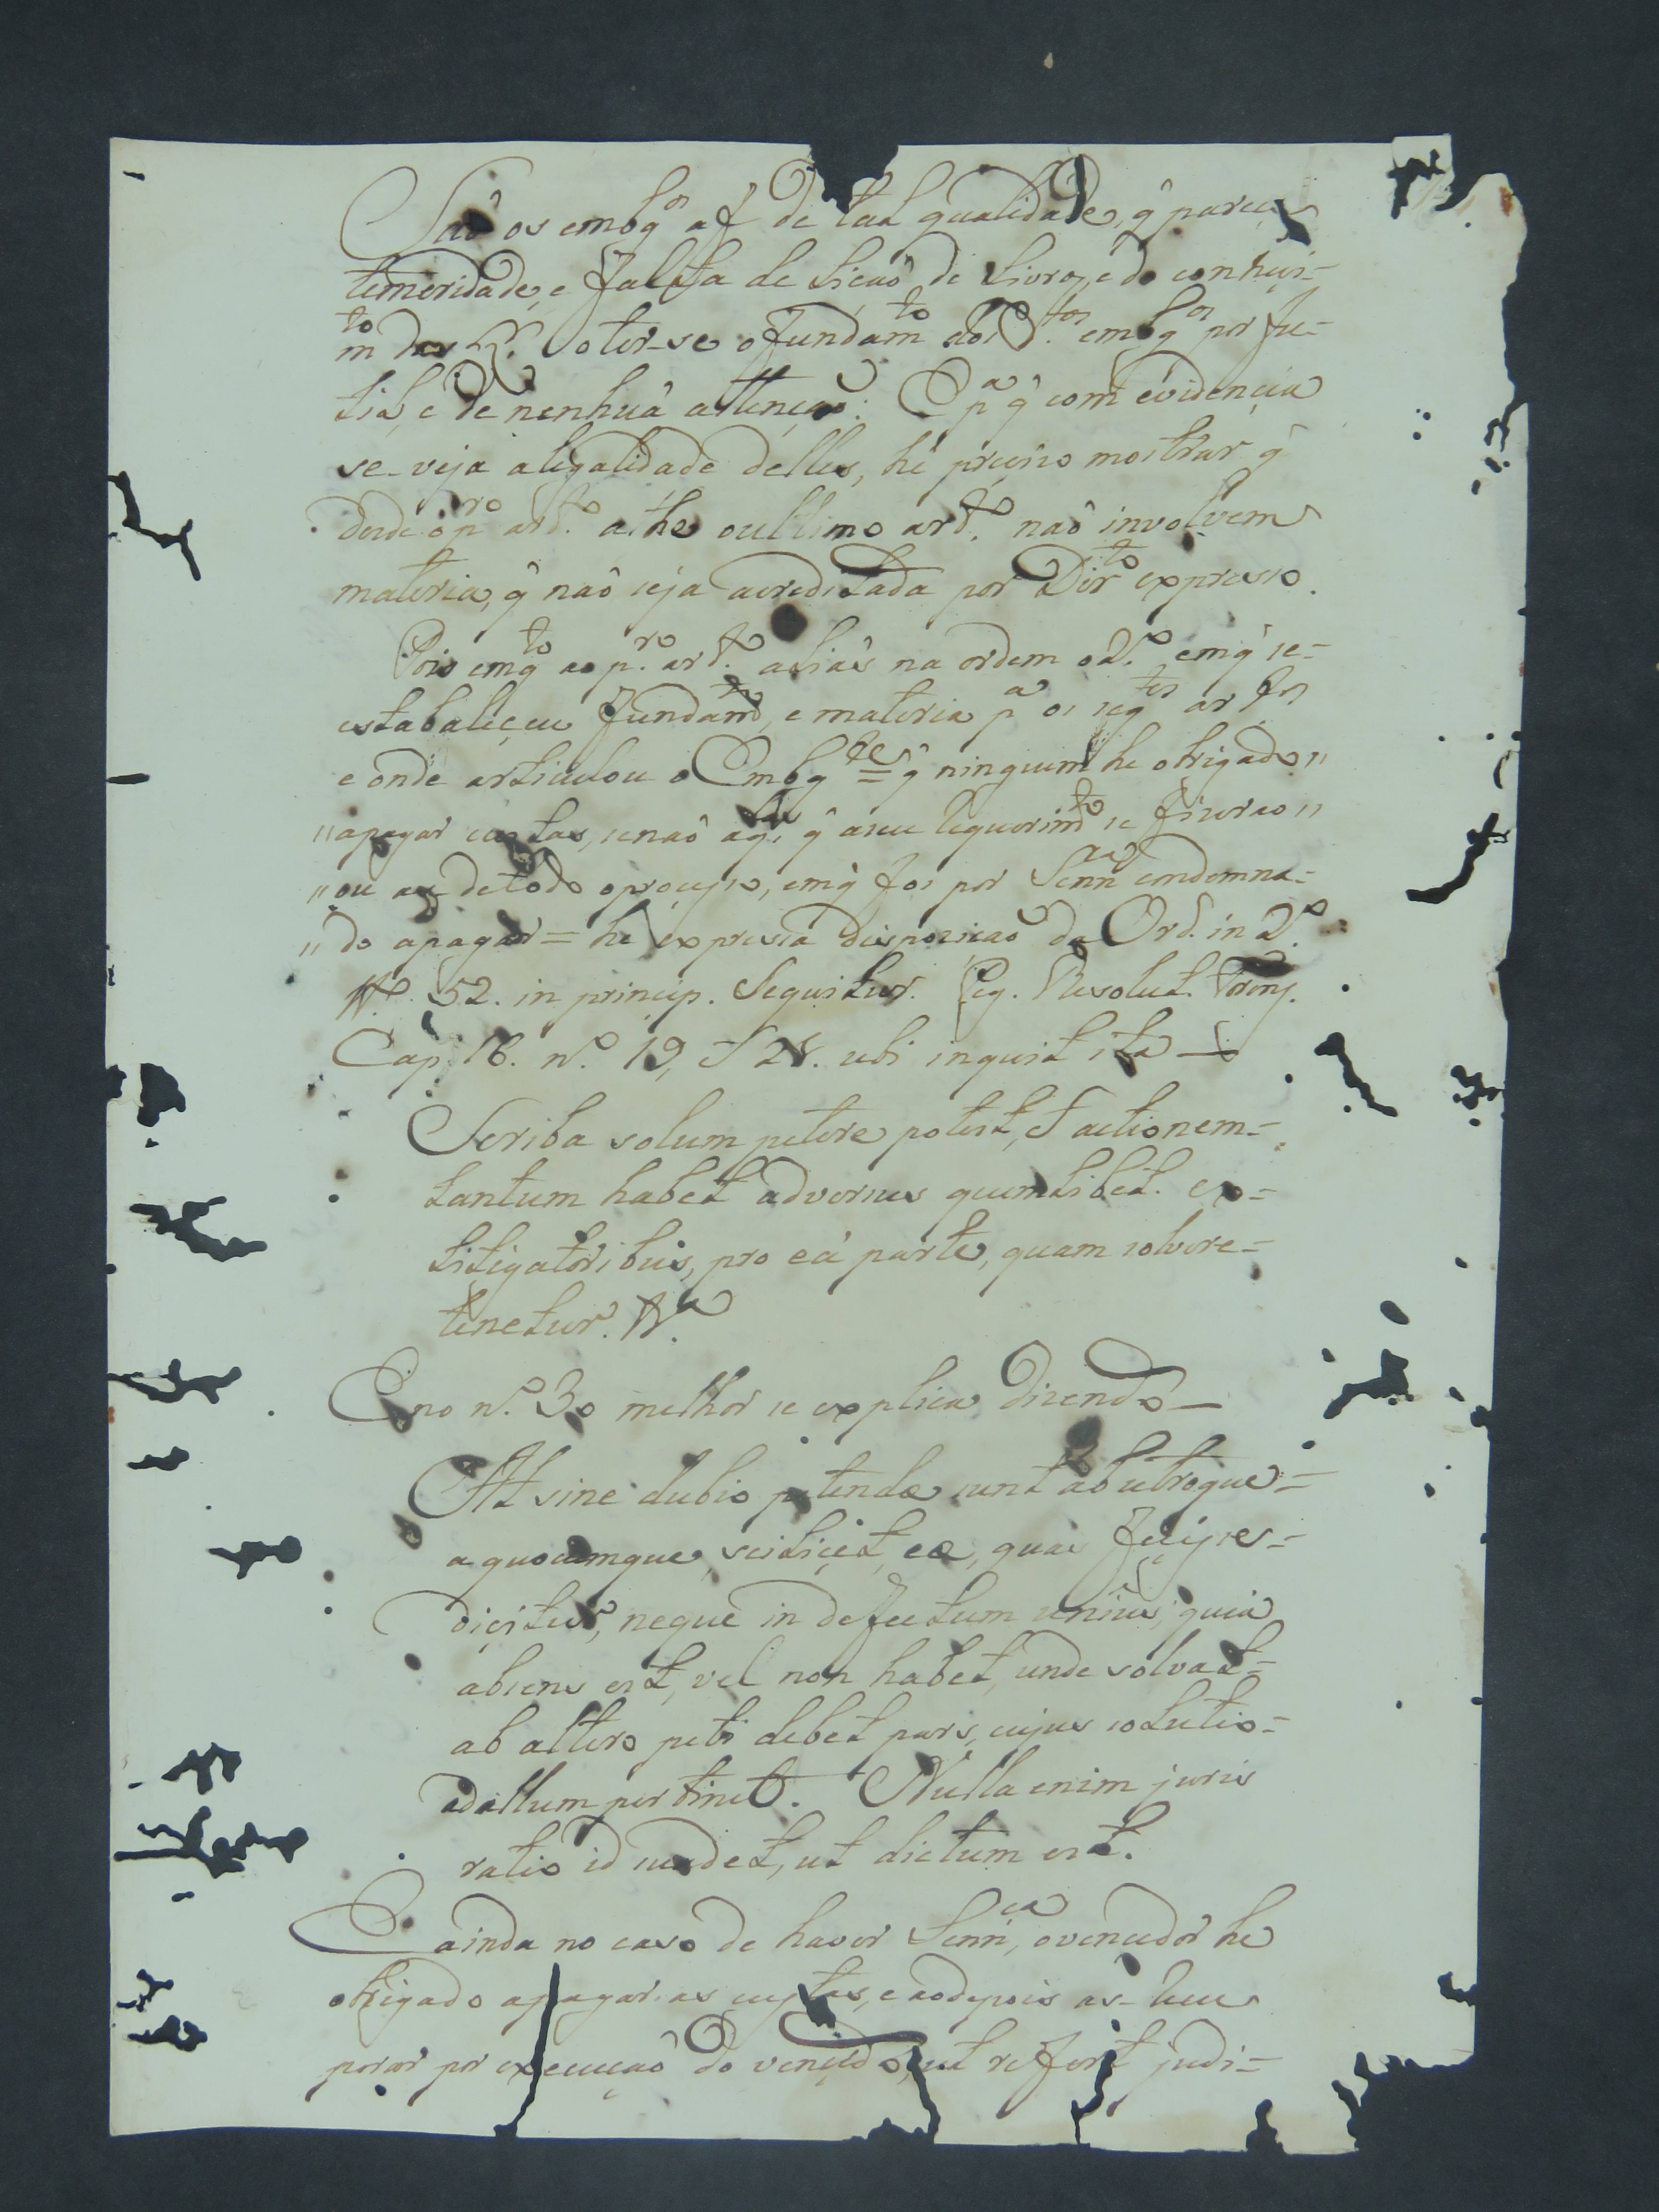 Saõ os embg.os a f de tal qualidade, q̃ pareçe
temeridade, e falta de liçaõ de livros, e do conheçi-
m.to das ter-se o fundam.to dos d.tos embg.os por fu-
til, e de nenhuã attençaõ: E p.a q̃ com evidençia
se-veja alegalidade delles, hé preciso mostrar q̃
desde o pr.o art.o athe oultimo art.o naõ involvem
materia, q̃ naõ seja acreditada por Dir.to expresso.
Pois emq.to ao pr.o art.o aliás na ordem o 2.o emq̃ se-
estabaleçeu fundam.to, e materia p.a os seg.tes art.os
e onde articulou o Embg.te = q̃ ninguem he obrigado "
" apagar custas, senaõ aq.las q̃ aseu requerim.to se fizeraõ "
" ou as detodo oproçesso, emq̃ foi por Senn.ca condemna-
" do apagar = hé expressa dispoziçaõ da Ord. in 2.o
tt.o 52. in princip. Sequitur. Peg. Resolut. Forens.
Cap. 16. n.o 19, & 28. ubi inquit ita —
Scriba solum petere potest, & actionem-
tantum habet adversus quemlibet ex-
litigatoribus, pro eá parte, quam solvere-
tenetur. tt.a
E no n.o 30 melhor se explica dizendo —
At sine dubio petendæ sunt ab utroque-
a quocumque, scilicet, eæ, quæ
diçitur, neque in defectum unius, quia
absens est, vel non habet, unde solvat-
ab altero peti debet pars, cujus solutio-
ad illum pertinet. Nulla enim juris
ratio id suadet, ut dictum est.
E ainda no caso de haver Senn.ca, o vencedor he
obrigado apagar as custas, e aodepois as-recu
perar por execuçaõ do vençido, ut refert judi-